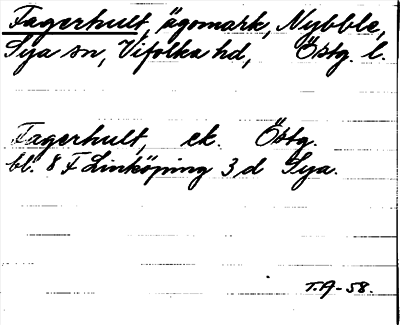 Fagerhult, ägomark, Nybble,
Sya sn, Vifolka hd, Östg. l.
Fagerhult, ek. Östg.
bl. 8 F Linköping 3 d Sya.
T.A-58.